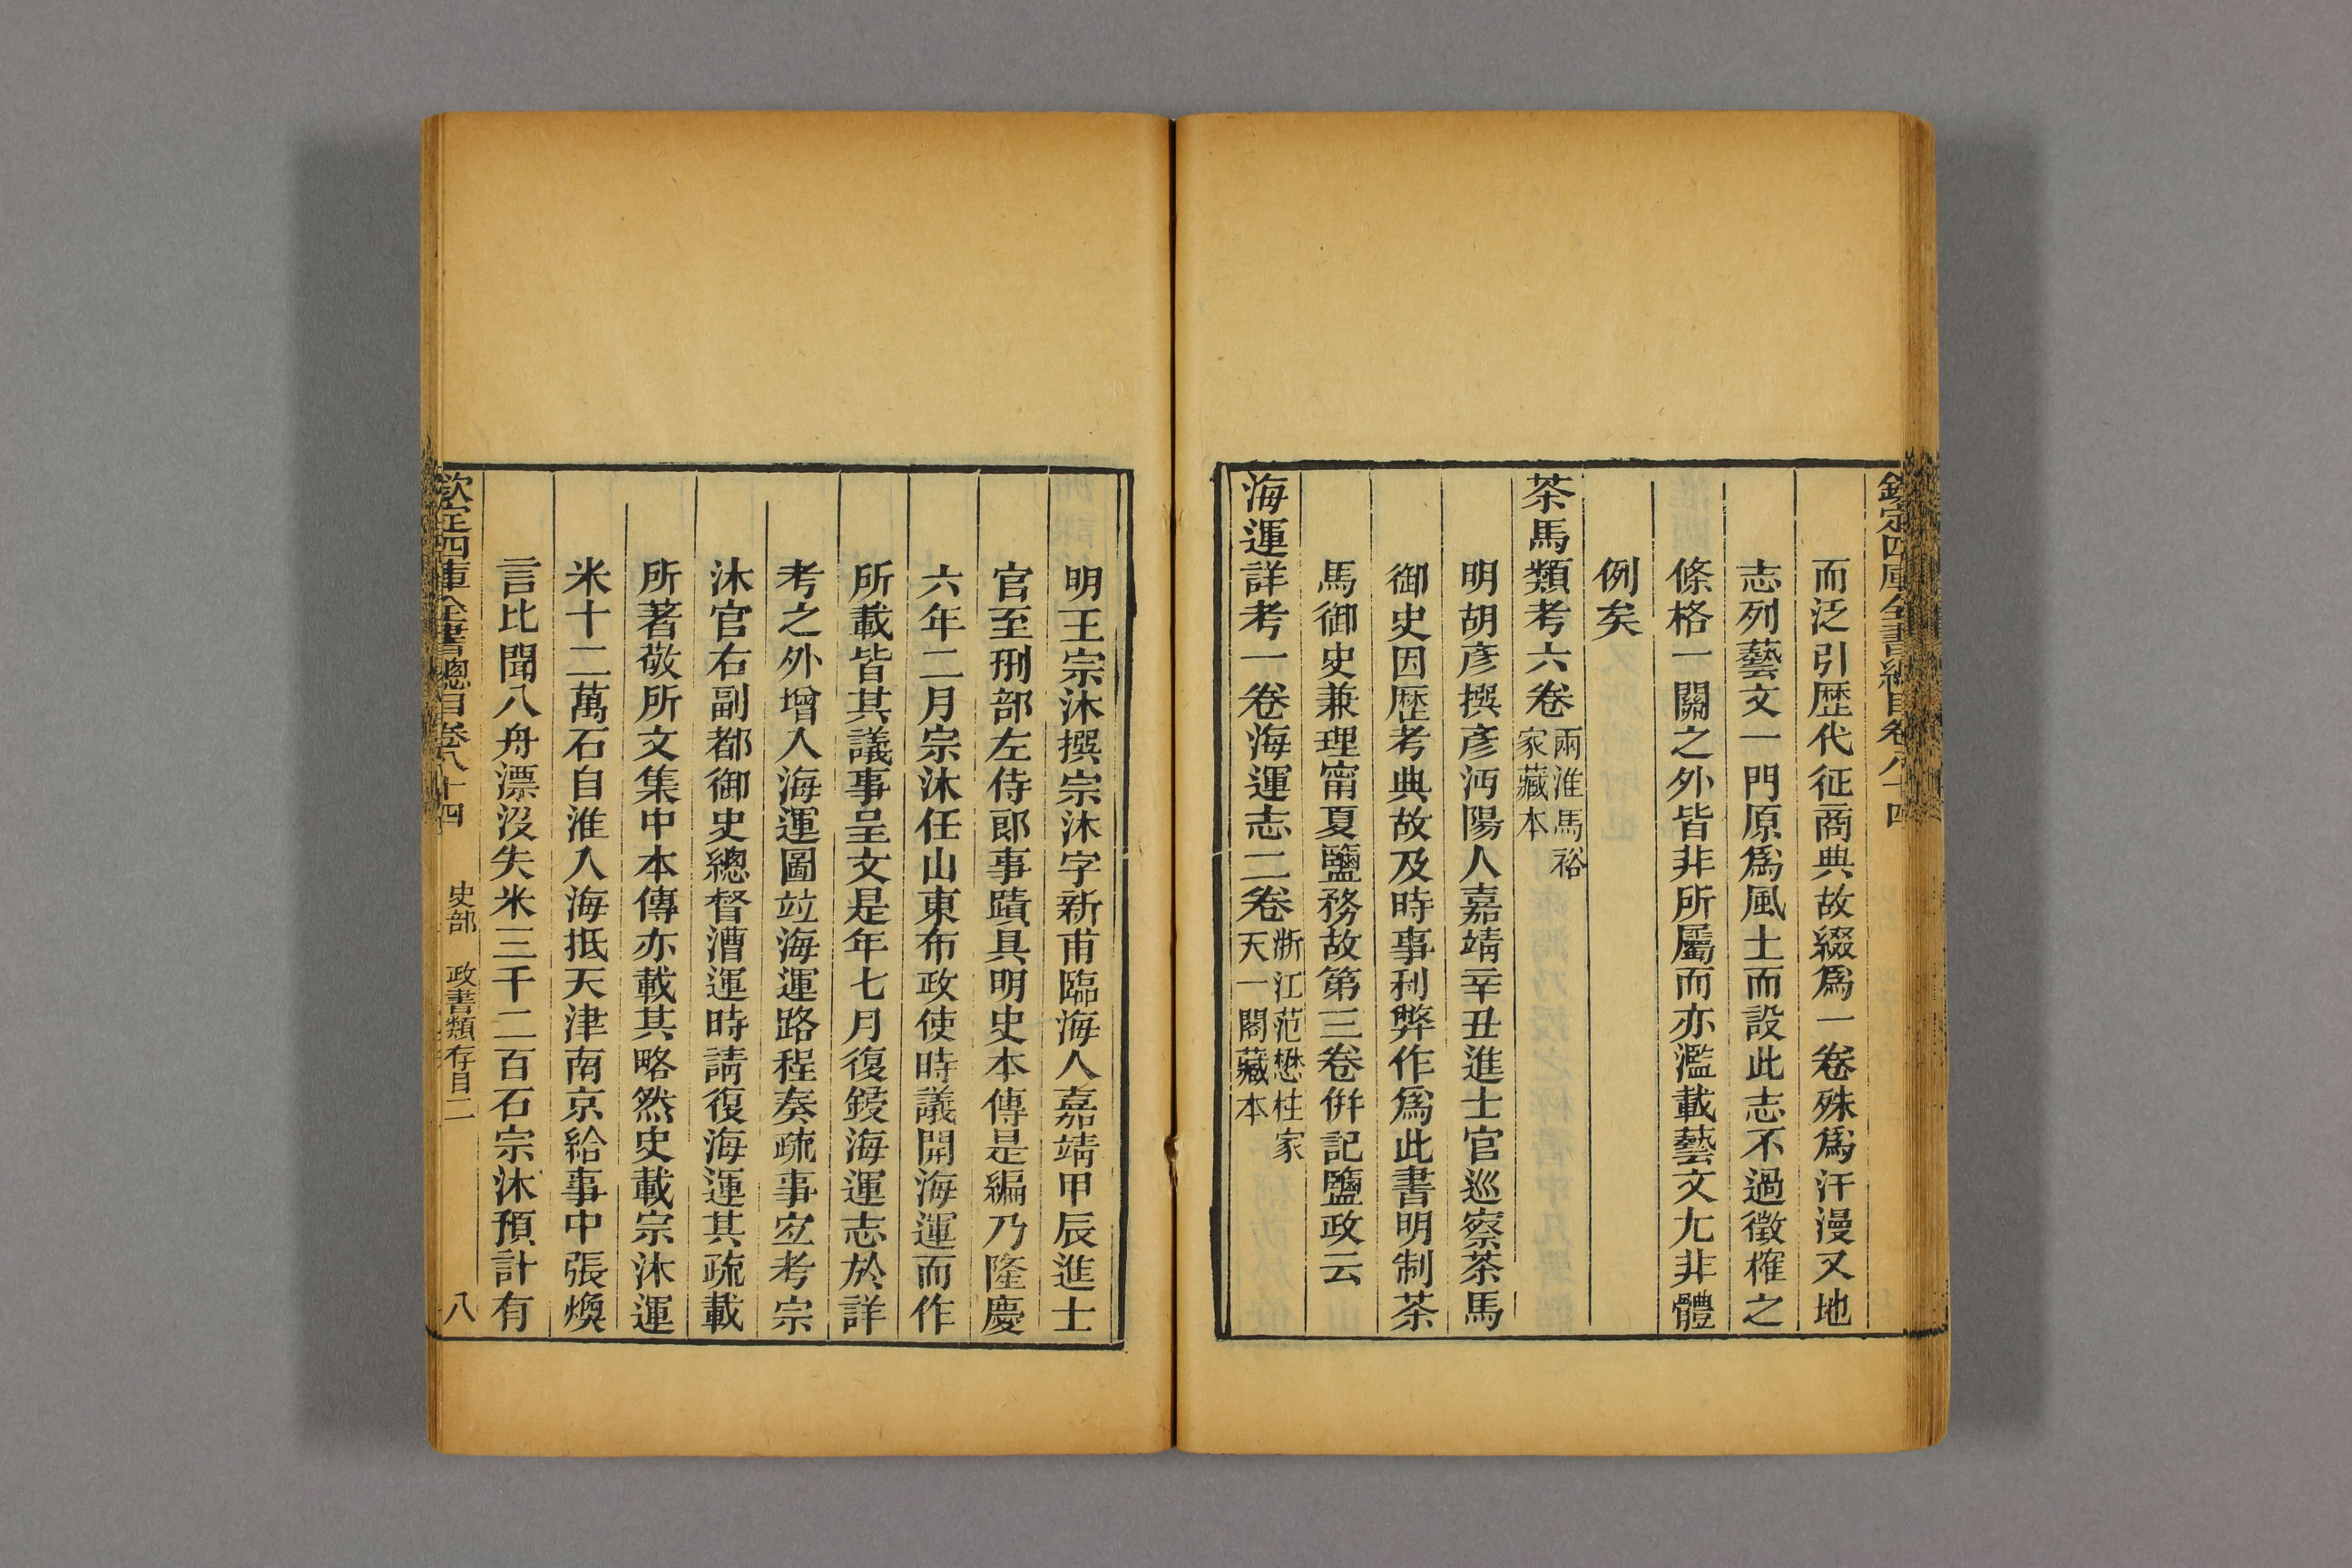 欽定四庫全書總目卷八十四
而泛引歷代征商典故綴爲一卷殊爲汗漫又地
志列藝文一門原爲風土而設此志不過徵榷之
條格一關之外皆非所屬而亦濫載藝文尤非體
例矣
茶馬類考六卷兩淮馬裕家藏本
明胡彥撰彥沔陽人嘉靖辛丑進士官巡察茶馬
御史因歷考典故及時事利弊作爲此書明制茶
馬御史兼理甯夏鹽務故第三卷倂記鹽政云
海運詳考一卷海運志二卷浙江范懋柱家天一閣藏本
明王宗沐撰宗沐字新甫臨海人嘉靖甲辰進士
官至刑部左侍郎事蹟具明史本傳是編乃隆慶
六年二月宗沐任山東布政使時議開海運而作
所載皆其議事呈文是年七月復鋟海運志於詳
考之外增入海運圖竝海運路程奏疏事宜考宗
沐官右副都御史總督漕運時請復海運其疏載
所著敬所文集中本傳亦載其略然史載宗沐運
米十二萬石自淮入海抵天津南京給事中張煥
言比聞八舟漂沒失米三千二百石宗沐預計有
欽定四庫全書總目卷八十四 史部 政書類存目二 八